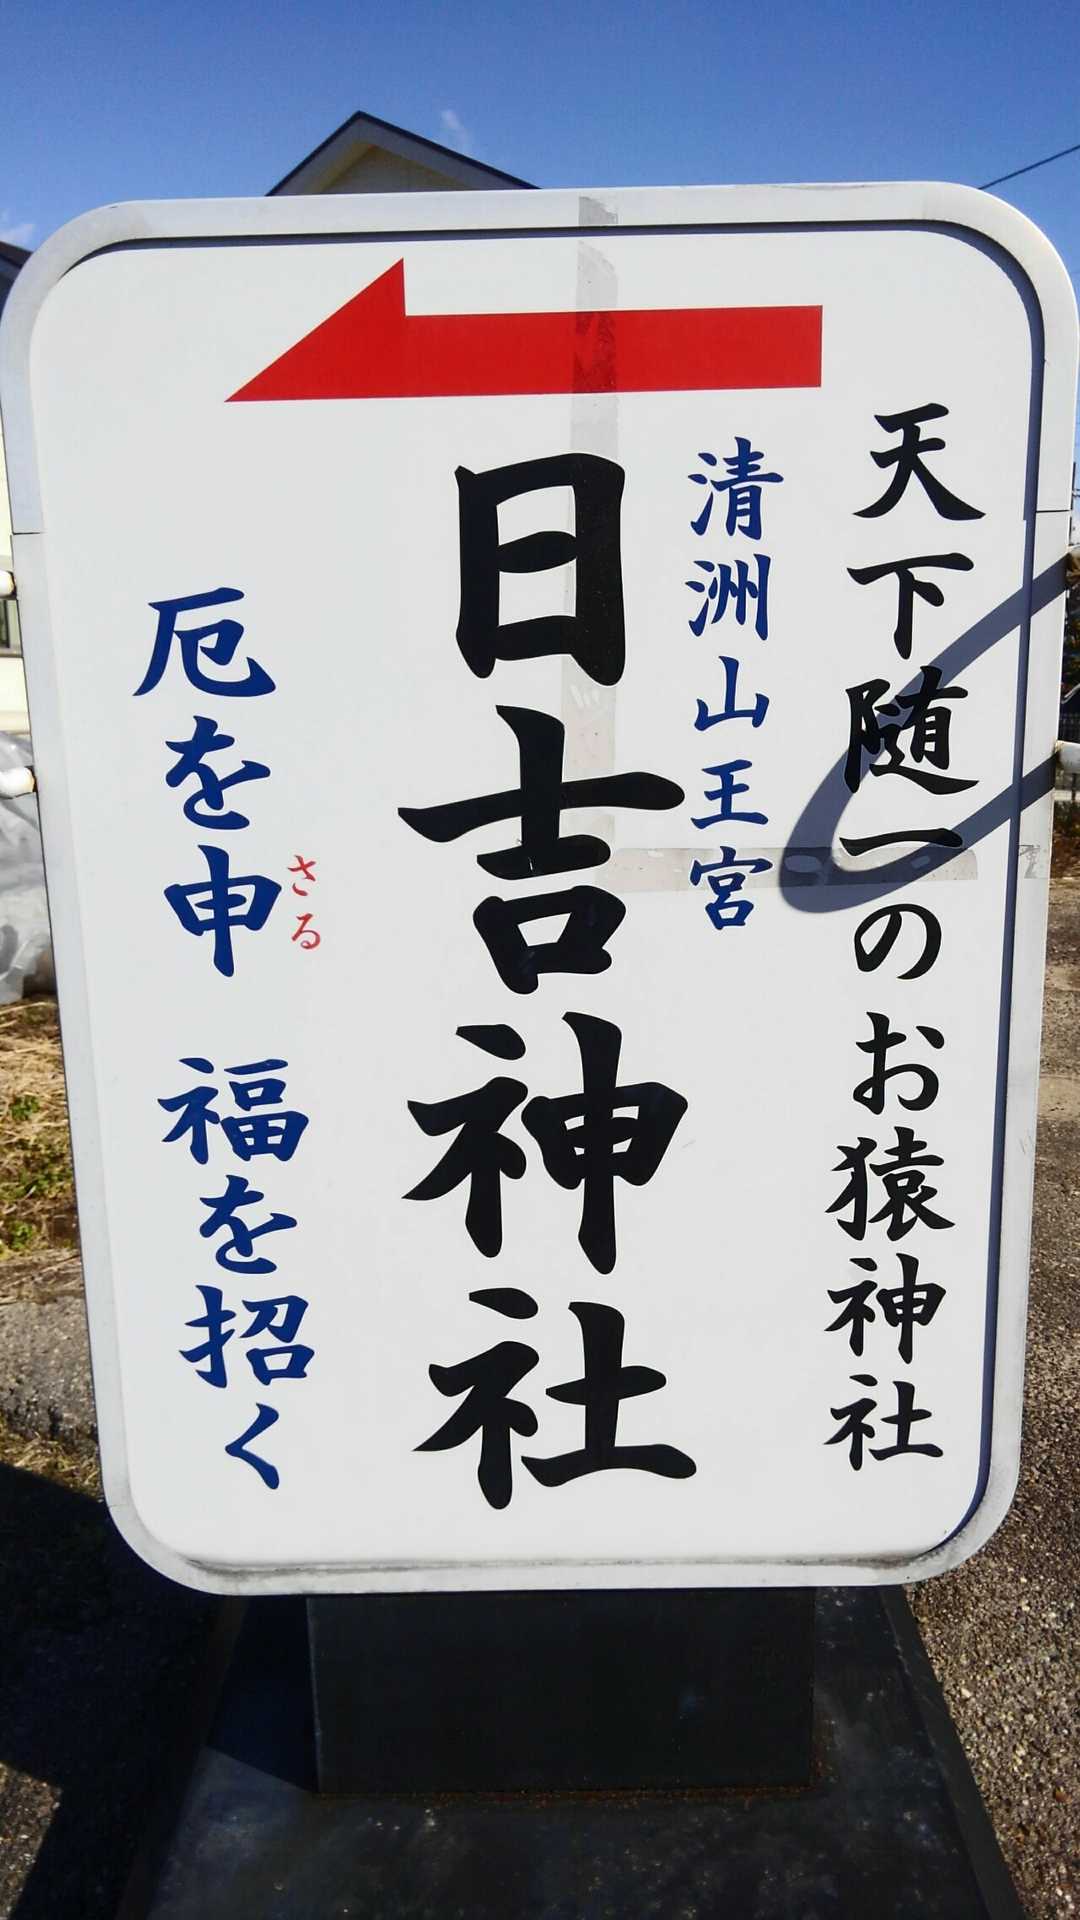 天下随一のお猿神社
清洲山王宮
日吉神社
さる
厄を申 福を招く